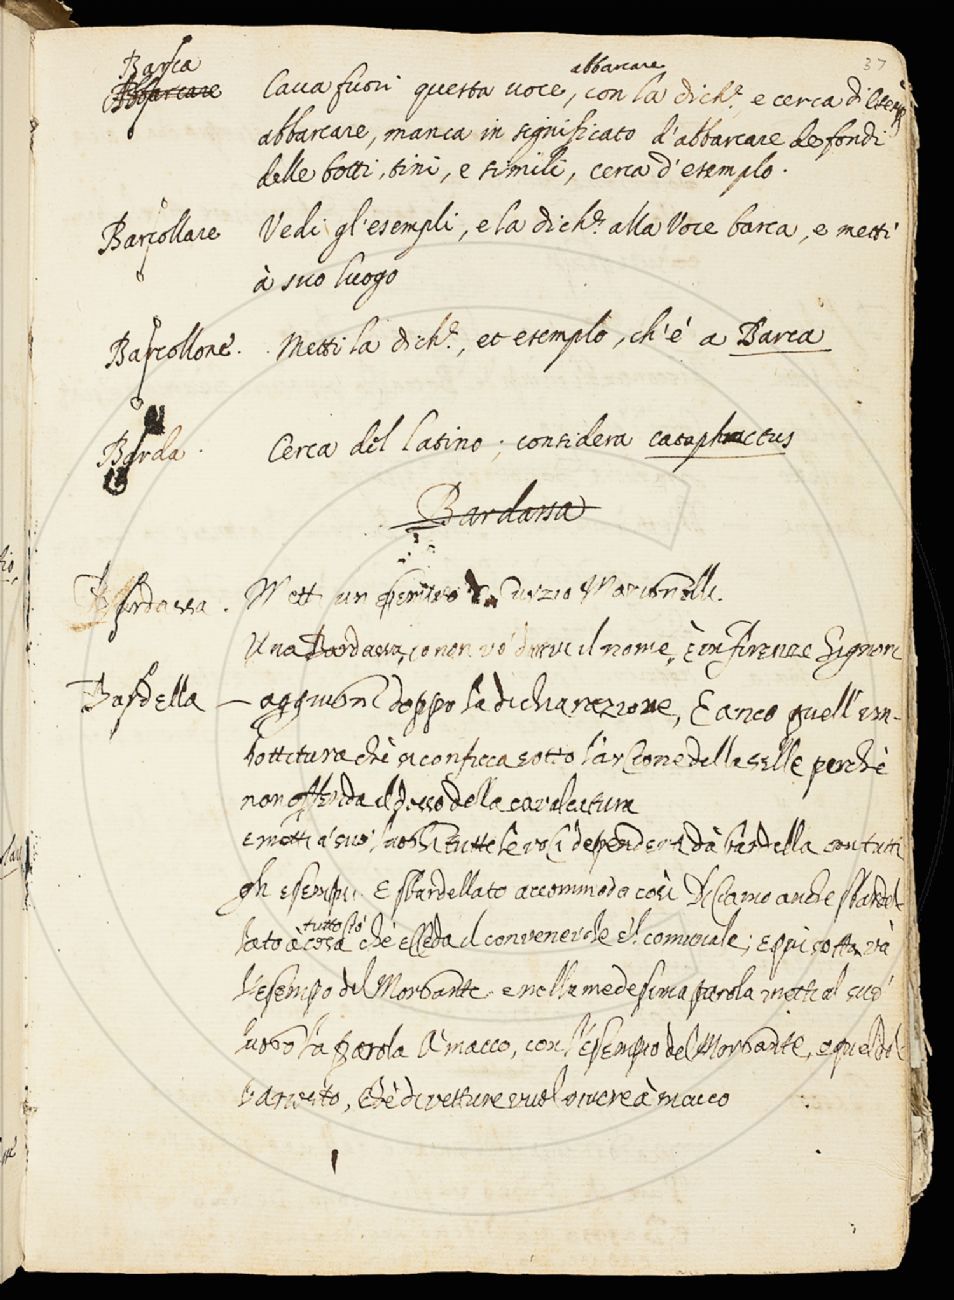 37
Barca
Abbarcare
abbarcare
Caua fuori questa uoce, con la dich.e e cerca d'esempi
abbarcare, manca in significato d'abbarcare de fondi
delle botti, tini, e simili, cerca d'esemplo.
Barcollare Vedi gl'esempli, e la dich.e alla Voce barca, e metti
à suo luogo
Barcollone. Metti la dich.e, et esemplo, ch'é a Barca
Barda. Cerca del latino; considera cataphractus
Bardassa
Bardassa. Mett un di Curzio Marignolli.
Una Bardassa, io non vo' dirvi il nome, È in firenze Signori
Bardella — aggiugni doppo la dichiarazzione, E anco quell'im-
bottitura che si conficca sotto l'arcione della selle perchè
non offenda il dosso della cavalcatura
e metti a' suoi luoghi tutte le voci dependenti dà bardella con tutti
gli esempi. E sbardellato accommoda così Diciamo anche sbardel-
lato à cosa che ecceda il convenevole e'l comunale; e qui sotto và
tutto ciò
l'esempio del Morgante e nella medesima parola metti al suo
luogo la parola à macco, con l'esempio del Morgante, e quel del
, che di vetture vuol vivere à macco